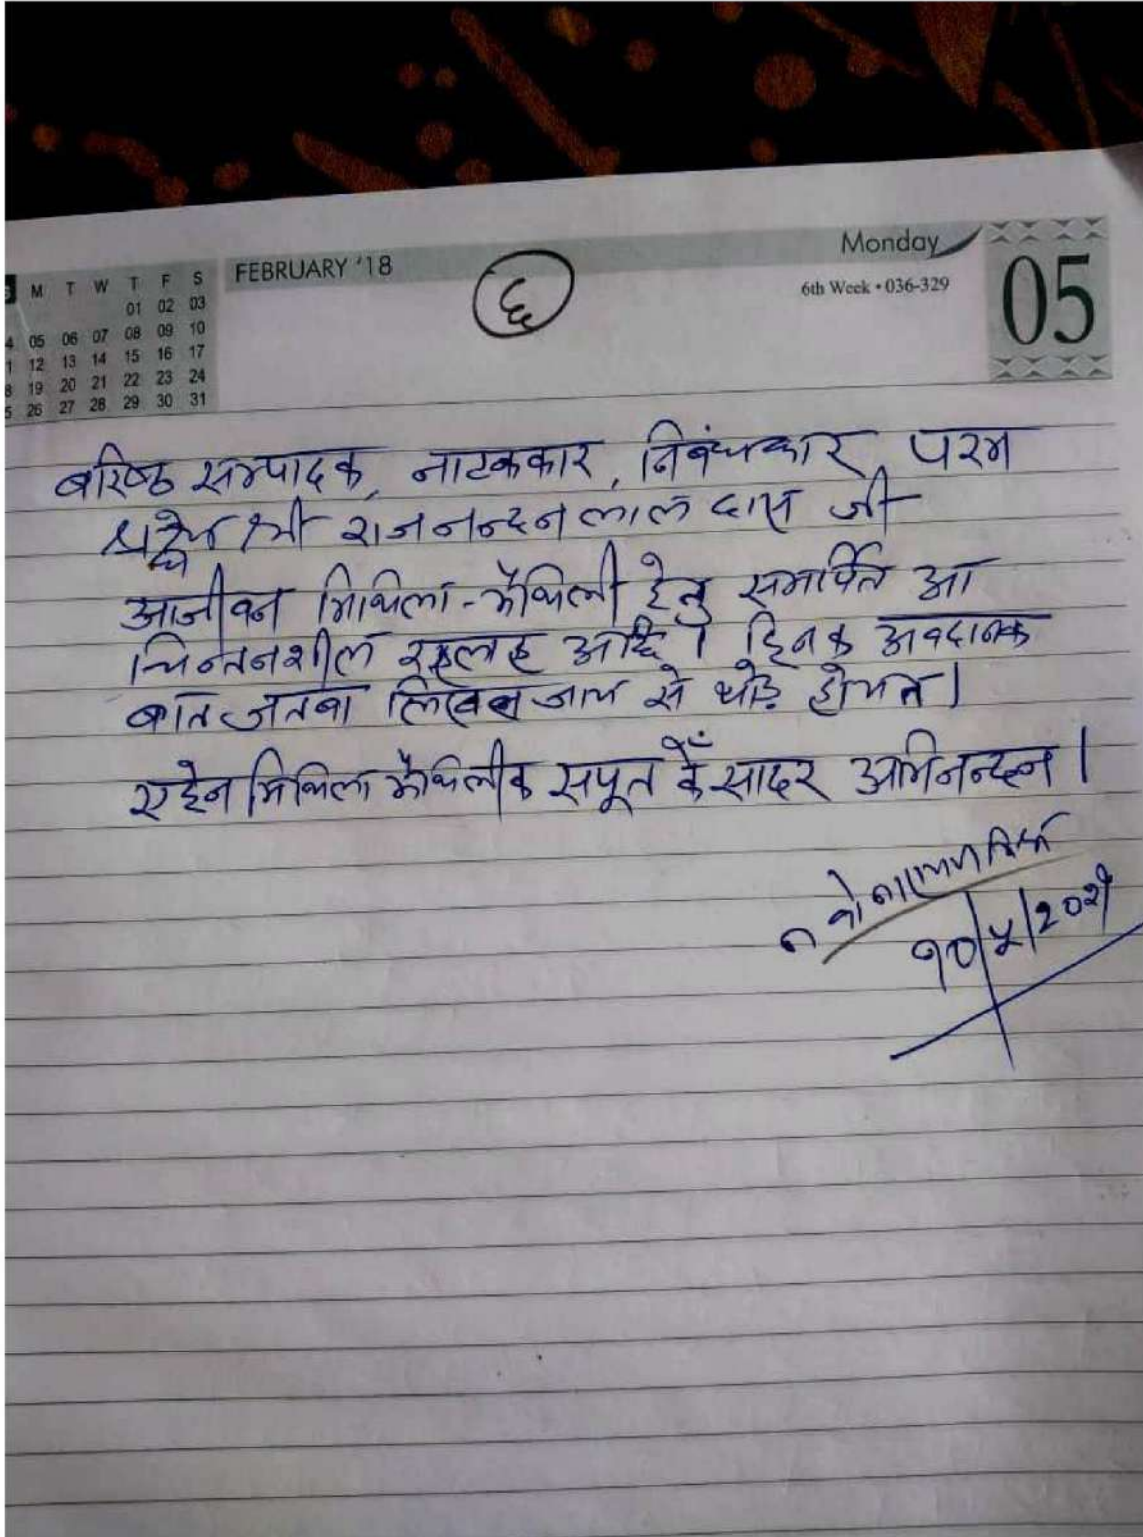 FEBRUARY '18
M T W T F S
01 02 03
05 06 07 08 09 10
12 13 14 15 16 17
19 20 21 22 23 24
26 27 28 29 30 31
६
Monday
6th Week • 036-329
05
बरिष्ठ सम्पादक, नाटककार, निबंधकार, परम
श्रद्धेय श्री राजनन्दन लाल दास जी
आजीवन मिथिला-मैथिली हेतु समर्पित आ
चिन्तनशील रहलाह अछि। हिनक अवदानक
बात जतबा लिखल जाय से थोड़े होयत।
एहेन मिथिला मैथिलीक सपूत केँ सादर अभिनन्दन।
१०/५/२०२१